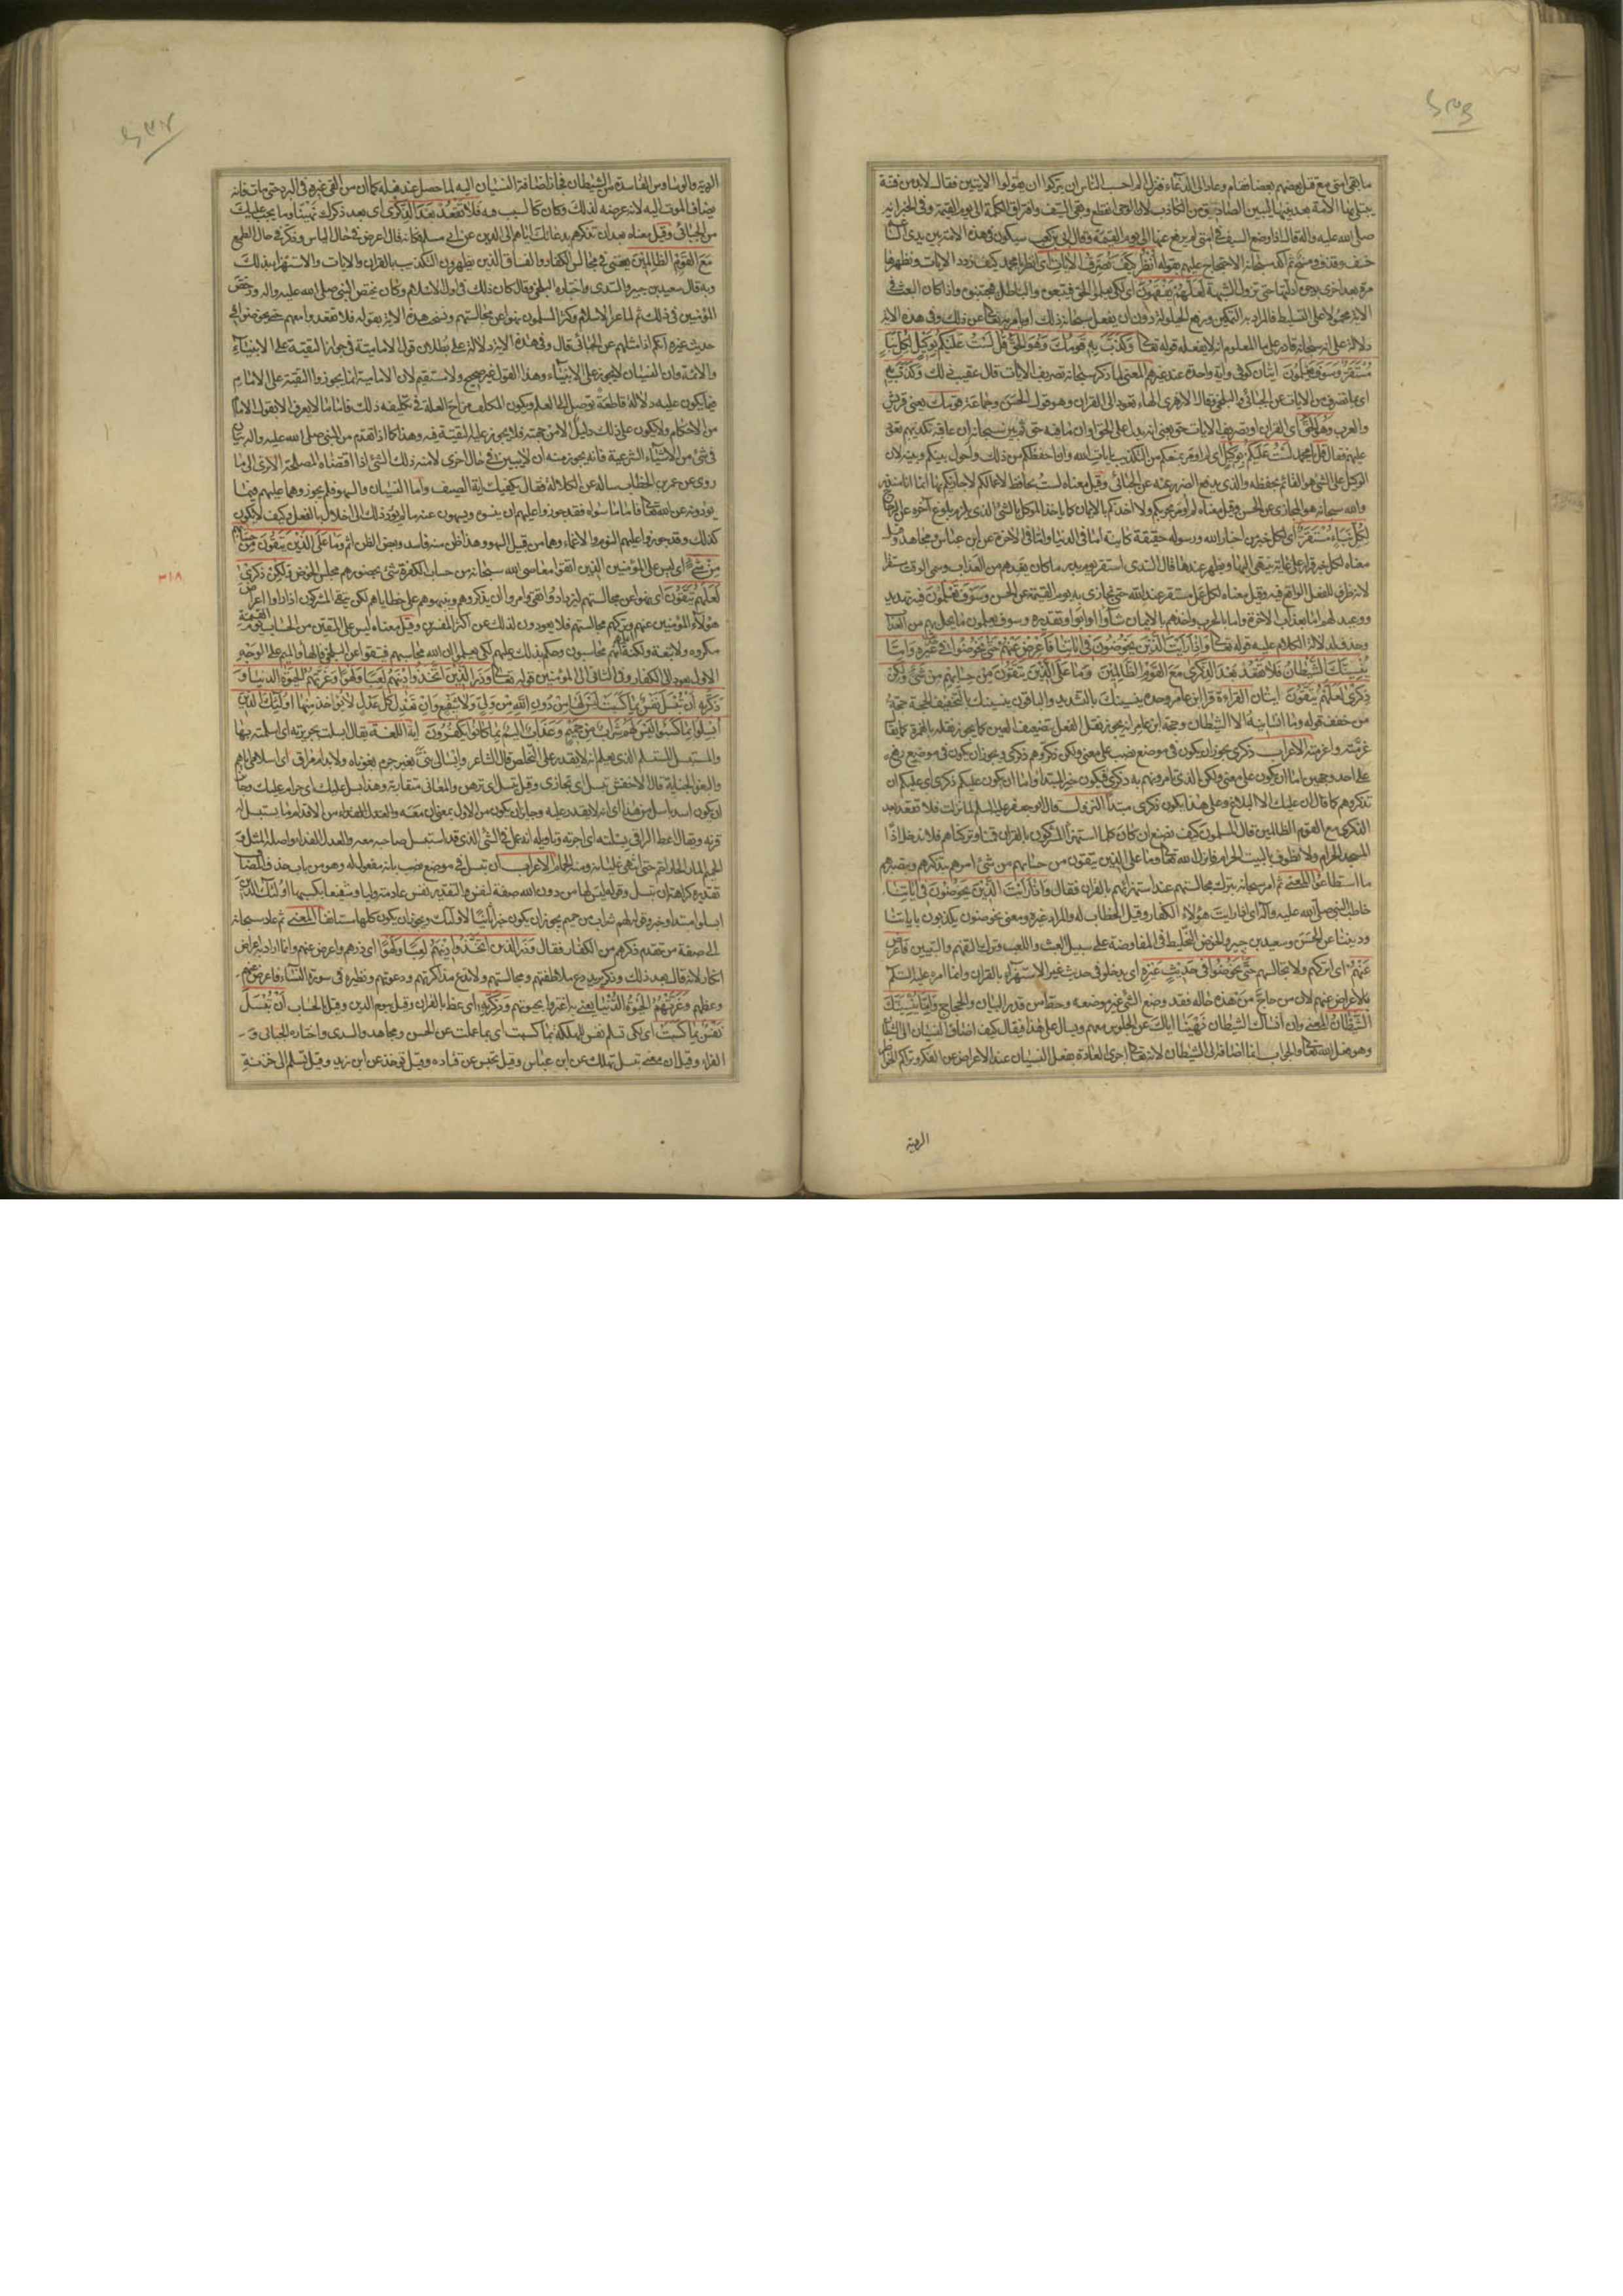 ما بقي امتي مع قتل بعضهم بعضا فقام وعاد الى الدعاء فنزل الم احسب الناس ان يتركوا ان يقولوا الايتين فقال لابد من فتنة
يبتلى بها الامة بعد نبيها ليتبين الصادق من الكاذب لان الوحي انقطع وبقي السيف وافتراق الكلمة الى يوم القيمة وفي الخبر انه
صلى الله عليه واله قال اذا وضع السيف في امتي لم يرفع عنها الى يوم القيمة وقال ابي بن كعب سيكون في هذه الامة بين يدي الساعة
خسف وقذف ومسخ ثم اكد سبحانه الاحتجاج عليهم بقوله انظر كيف نصرف الايات اي انظر يا محمد كيف نردد الايات ونظهرها
مرة بعد اخرى بوجوه ادلتها حتى تزول الشبهة لعلهم يفقهون اي لكي يعلموا الحق فيتبعوه والباطل فيجتنبوه واذا كان البعث في
الاية محمولا على التسليط فالمراد به التمكين ورفع الحيلولة دون ان يفعل سبحانه ذلك او يامر به تعالى عن ذلك وفي هذه الاية
دلالة على انه سبحانه قادر على ما المعلوم انه لا يفعله قوله تعالى وكذب به قومك وهو الحق قل لست عليكم بوكيل لكل نبأ
مستقر وسوف تعلمون ايتان كوفي واية واحدة عند غيرهم المعنى لما ذكر سبحانه تصريف الايات قال عقيب ذلك وكذب به
اي بما نصرف من الايات عن الجبائي والبلخي وقال الازهري الهاء تعود الى القران وهو قول الحسن وجماعة قومك يعني قريش
والعرب وهو الحق اي القران او تصريف الايات حق يعني انه يدل على الحق وان ما فيه حق ثم بين سبحانه ان عاقبة تكذيبهم تعود
عليهم فقال قل يا محمد لست عليكم بوكيل اي لم اومر بمنعكم من التكذيب بايات الله وان احفظكم من ذلك واحول بينكم وبينه لان
الوكيل على الشيء هو القائم بحفظه والذي يدفع الضرر عنه عن الجبائي وقيل معناه لست بحافظ لاعمالكم لاجازيكم بها انما انا منذر
والله سبحانه هو المجازي عن الحسن وقيل معناه لم اومر بحربكم ولا اخذكم بالايمان كما ياخذ الموكل بالشيء الذي يلزم بلوغ اخره عن الزجاج
لكل نباء مستقر اي لكل خبر من اخبار الله ورسوله حقيقة كاينة اما في الدنيا واما في الاخرة عن ابن عباس ومجاهد وقيل
معناه لكل خبر قرار على غاية ينتهي اليها ويظهر عندها قال السدي استقر يوم بدر ما كان يعدهم من العذاب وسمى الوقت مستقرا
لانه ظرف للفعل الواقع فيه وقيل معناه لكل عمل مستقر عند الله حتى يجازى به يوم القيمة عن الحسن وسوف تعلمون فيه تهديد
ووعيد لهم اما بعذاب الاخرة واما بالحرب واخذهم بالايمان شاؤا او ابوا وتقديره وسوف تعلمون ما يحل بكم من العذاب
وحذف لدلالة الكلام عليه قوله تعالى واذا رايت الذين يخوضون في اياتنا فاعرض عنهم حتى يخوضوا في حديث غيره واما
ينسينك الشيطان فلا تقعد بعد الذكرى مع القوم الظالمين وما على الذين يتقون من حسابهم من شيء ولكن
ذكرى لعلهم يتقون ايتان القراءة قرأ ابن عامر وحده ينسينك بالتشديد والباقون ينسينك بالتخفيف الحجة حجة
من خفف قوله وما انسانيه الا الشيطان وحجة ابن عامر انه يجوز نقل الفعل بتضعيف العين كما يجوز نقله بالهمزة كما يقال
غرمته واغرمته الاعراب ذكرى يجوز ان يكون في موضع نصب على معنى ولكن ذكروهم ذكرى ويجوز ان يكون في موضع رفع
على احد وجهين اما ان يكون على معنى ولكن الذي تامرونهم به ذكرى فيكون خبر المبتدا واما ان يكون عليكم ذكرى اي عليكم ان
تذكروهم كما قال ان عليك الا البلاغ وعلى هذا يكون ذكرى مبتدأ النزول قال ابو جعفر عليه السلم لما نزلت فلا تقعد بعد
الذكرى مع القوم الظالمين قال المسلمون كيف نصنع ان كان كلما استهزأ المشركون بالقران قمنا وتركناهم فلا ندخل اذا
المسجد الحرام ولا نطوف بالبيت الحرام فانزل الله تعالى وما على الذين يتقون من حسابهم من شيء امرهم بتذكيرهم وتبصيرهم
ما استطاعوا المعنى ثم امر سبحانه بترك مجالستهم عند استهزائهم بالقران فقال واذا رايت الذين يخوضون في اياتنا
خاطب النبي صلى الله عليه واله اي اذا رايت هؤلاء الكفار وقيل الخطاب له والمراد غيره ومعنى يخوضون يكذبون باياتنا
وديننا عن الحسن وسعيد بن جبير والخوض التخليط في المفاوضة على سبيل العبث واللعب وترك التفهم والتبيين فاعرض
عنهم اي اتركهم ولا تجالسهم حتى يخوضوا في حديث غيره اي يدخلوا في حديث غير الاستهزاء بالقران وانما امره عليه السلم
بالاعراض عنهم لان من حاج من هذه حاله فقد وضع الشيء غير موضعه وحط من قدر البيان والحجاج واما ينسينك
الشيطان المعنى وان انساك الشيطان نهينا اياك عن الجلوس معهم ويسال على هذا فيقال كيف اضاف النسيان الى الشيطان
وهو فعل الله تعالى والجواب انما اضافه الى الشيطان لانه تعالى اجرى العادة بفعل النسيان عند الاعراض عن الفكر وتراكم الخواطر
الردية
الردية والوساوس الفاسدة من الشيطان فجاز اضافة النسيان اليه لما حصل عند فعله كما ان من القى غيره في البرد حتى مات فانه
يضاف الموت اليه لانه عرضه لذلك وكان كالسبب فيه فلا تقعد بعد الذكرى اي بعد ذكرك نهينا وما يجب عليك
من الجبائي وقيل معناه بعد ان تذكرهم بدعائك اياهم الى الدين عن ابي مسلم فكانه قال اعرض في حال الياس وذكر في حال الطمع
مع القوم الظالمين يعني في مجالس الكفار والفساق الذين يظهرون التكذيب بالقران والايات والاستهزاء بذلك
وبه قال سعيد بن جبير والسدي واختاره البلخي وقال كان ذلك في اول الاسلام وكان يختص النبي صلى الله عليه واله ورخص
المؤمنين في ذلك ثم لما عز الاسلام وكثر المسلمون نهوا عن مجالستهم ونسخ هذه الاية بقوله فلا تقعدوا معهم حتى يخوضوا في
حديث غيره انكم اذا مثلهم عن الجبائي قال وفي هذه الاية دلالة على بطلان قول الامامية في جواز التقية على الانبياء
والائمة وان النسيان لا يجوز على الانبياء وهذا القول غير صحيح ولا مستقيم لان الامامية انما يجوزوا التقية على الامام
فيما يكون عليه دلالة قاطعة توصل الى العلم ويكون المكلف مزاح العلة في تكليفه ذلك فاما ما لا يعرف الا بقول الامام
من الاحكام ولا يكون على ذلك دليل الا من جهته فلا يجوز عليه التقية فيه وهذا كما اذا تقدم من النبي صلى الله عليه واله بيان
في شيء من الاشياء الشرعية فانه يجوز منه ان لا يبين في حال اخرى لامته ذلك الشيء اذا اقتضاه المصلحة الا ترى الى ما
روي عن عمر بن الخطاب ساله عن الكلالة فقال يكفيك اية الصيف واما النسيان والسهو فلم يجوزوهما عليهم فيما
يؤدونه عن الله تعالى فاما ما سواه فقد جوزوا عليهم ان ينسوه ويسهون عنه ما لم يؤد ذلك الى اخلال بالعقل وكيف لا يكون
كذلك وقد جوزوا عليهم النوم والاغماء وهما من قبيل السهو وهذا ظن منه فاسد وبعض الظن اثم وما على الذين يتقون من حسابهم
من شيء اي ليس على المؤمنين الذين اتقوا معاصي الله سبحانه من حساب الكفرة شيء بحضورهم مجلس الخوض ولكن ذكرى
لعلهم يتقون اي نهوا عن مجالستهم ليزدادوا تقى وامروا ان يذكروهم وينبهوهم على خطاياهم لكي يتقي المشركون اذا راوا اعراض
هؤلاء المؤمنين عنهم وتركهم مجالستهم فلا يعودون لذلك عن اكثر المفسرين وقيل معناه ليس على المتقين من الحساب يوم القيمة
مكروه ولا تبعة ولكنه اعلمهم بانهم محاسبون وحكم بذلك عليهم لكي يعلموا ان الله محاسبهم فيتقوا عن البلخي فالهاء والميم على الوجه
الاول يعود الى الكفار وفي الثاني الى المؤمنين قوله تعالى وذر الذين اتخذوا دينهم لعبا ولهوا وغرتهم الحيوة الدنيا و
ذكر به ان تبسل نفس بما كسبت ليس لها من دون الله من ولي ولا شفيع وان تعدل كل عدل لا يؤخذ منها اولئك الذين
ابسلوا بما كسبوا لهم شراب من حميم وعذاب اليم بما كانوا يكفرون اية اللغة يقال ابسلت بجريرته اي اسلمته بها
والمستبسل المستسلم الذي يعلم انه لا يقدر على التخلص قال الشاعر وابسالي بني بغير جرم بعوناه ولا بدم مراق اي اسلامي اياهم
والبعو الجناية قال الاخفش تبسل اي تجازى وقيل تبسل اي ترهن والمعاني متقاربة وهذا بسل عليك اي حرام عليك وجائز
ان يكون اسد باسل من هذا اي انه لا يقدر عليه وجايز ان يكون من الاول بمعنى ان معه من الاقدام ما يستبسل له
قرنه ويقال اعط الراقي بسلته اي اجرته وتاويله انه عمل في الشيء الذي قد استبسل صاحبه معه والعدل الفداء واصله المثل و
الحميم الماء الحار احم حتى انتهى غليانه ومنه الحمام الاعراب ان تبسل في موضع نصب بانه مفعول له وهو من باب حذف المضاف
تقديره كراهة ان تبسل وقوله ليس لها من دون الله صفة لنفس والتقدير نفس عادمة وليا وشفيعا بكسبها اولئك الذين
ابسلوا مبتدا وخبر وقوله لهم شراب من حميم يجوز ان يكون خبرا ثانيا لاولئك ويجوز ان يكون كلاما مستانفا المعنى ثم عاد سبحانه
الى صفة من تقدم ذكرهم من الكفار فقال وذر الذين اتخذوا دينهم لعبا ولهوا اي ذرهم واعرض عنهم وانما اراد به اعراض
انكار لانه قال بعد ذلك وذكر به يريد دع ملاطفتهم ومجالستهم ولا تدع مذاكرتهم ودعوتهم ونظيره في سورة النساء فاعرض عنهم
وعظهم وغرتهم الحيوة الدنيا يعني به اغتروا بحيوتهم وذكر به اي عظ بالقران وقيل بيوم الدين وقيل الحساب ان تبسل
نفس بما كسبت اي لكي تسلم نفس للهلكة بما كسبت اي بما عملت عن الحسن ومجاهد والسدي واختاره الجبائي و
الفراء وقيل ان معنى تبسل تهلك عن ابن عباس وقيل تحبس عن قتادة وقيل تؤخذ عن ابن زيد وقيل تسلم الى خزنة
٣١٨